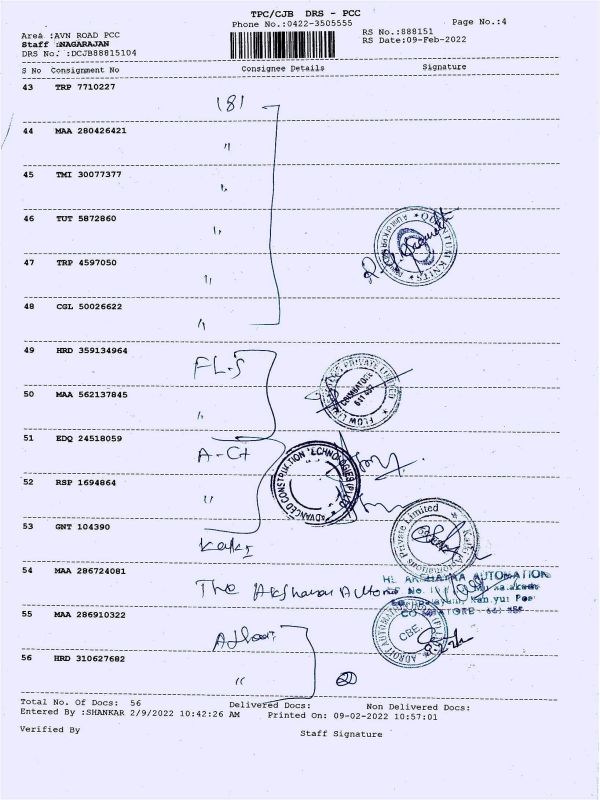 TPC/CJB DRS - PCC
Phone No.:0422-3505555
Page No.:4
Area :AVN ROAD PCC
Staff :NAGARAJAN
DRS No. :DCJB88815104
RS No.:888151
RS Date:09-Feb-2022
S No Consignment No Consignee Details Signature
43 TRP 7710227
181
44 MAA 280426421
"
45 TMI 30077377
"
46 TUT 5872860
"
47 TRP 4597050
"
48 CGL 50026622
"
49 HRD 359134964
FL-S
50 MAA 562137845
"
FLOW PRIVATE LIMITED
COIMBATORE
51 EDQ 24518059
A-Ct
ADVANCED CONSTRUCTION TECHNOLOGIES (P) LTD
52 RSP 1694864
"
53 GNT 104390
Private Limited
54 MAA 286724081
The Akshara Automa
AKSHAYAA AUTOMATION
55 MAA 286910322
ADROIT AUTOMATION
CBE
56 HRD 310627682
"
Total No. Of Docs: 56 Delivered Docs: Non Delivered Docs:
Entered By :SHANKAR 2/9/2022 10:42:26 AM Printed On: 09-02-2022 10:57:01
Verified By Staff Signature